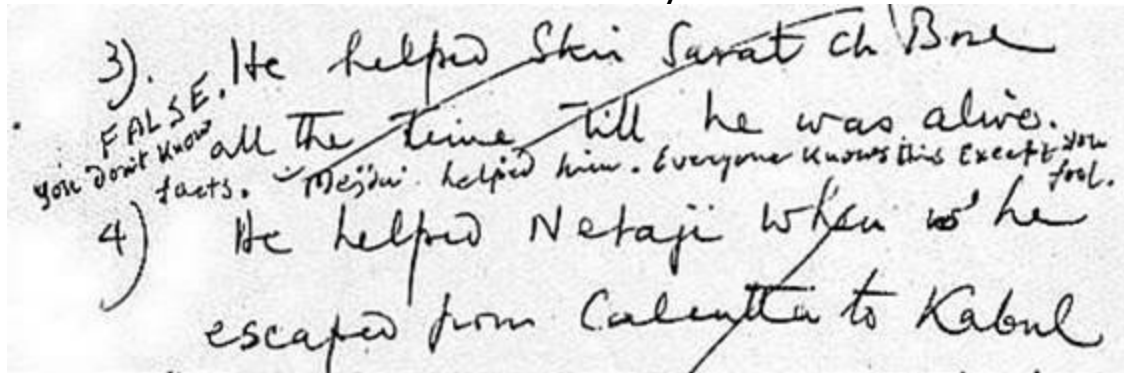 3). He helped Shri Sarat Ch Bose
FALSE.
all the time till he was alive.
You don't know
facts.
Mejda helped him. Everyone knows this Except you
fool.
4) He helped Netaji when he
escaped from Calcutta to Kabul